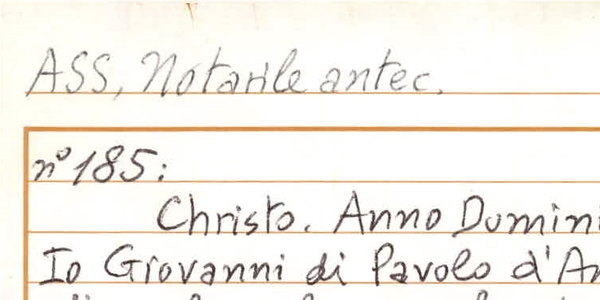 ASS, Notarile antec.
n° 185:
Christo. Anno Domini
Io Giovanni di Pavolo d'An